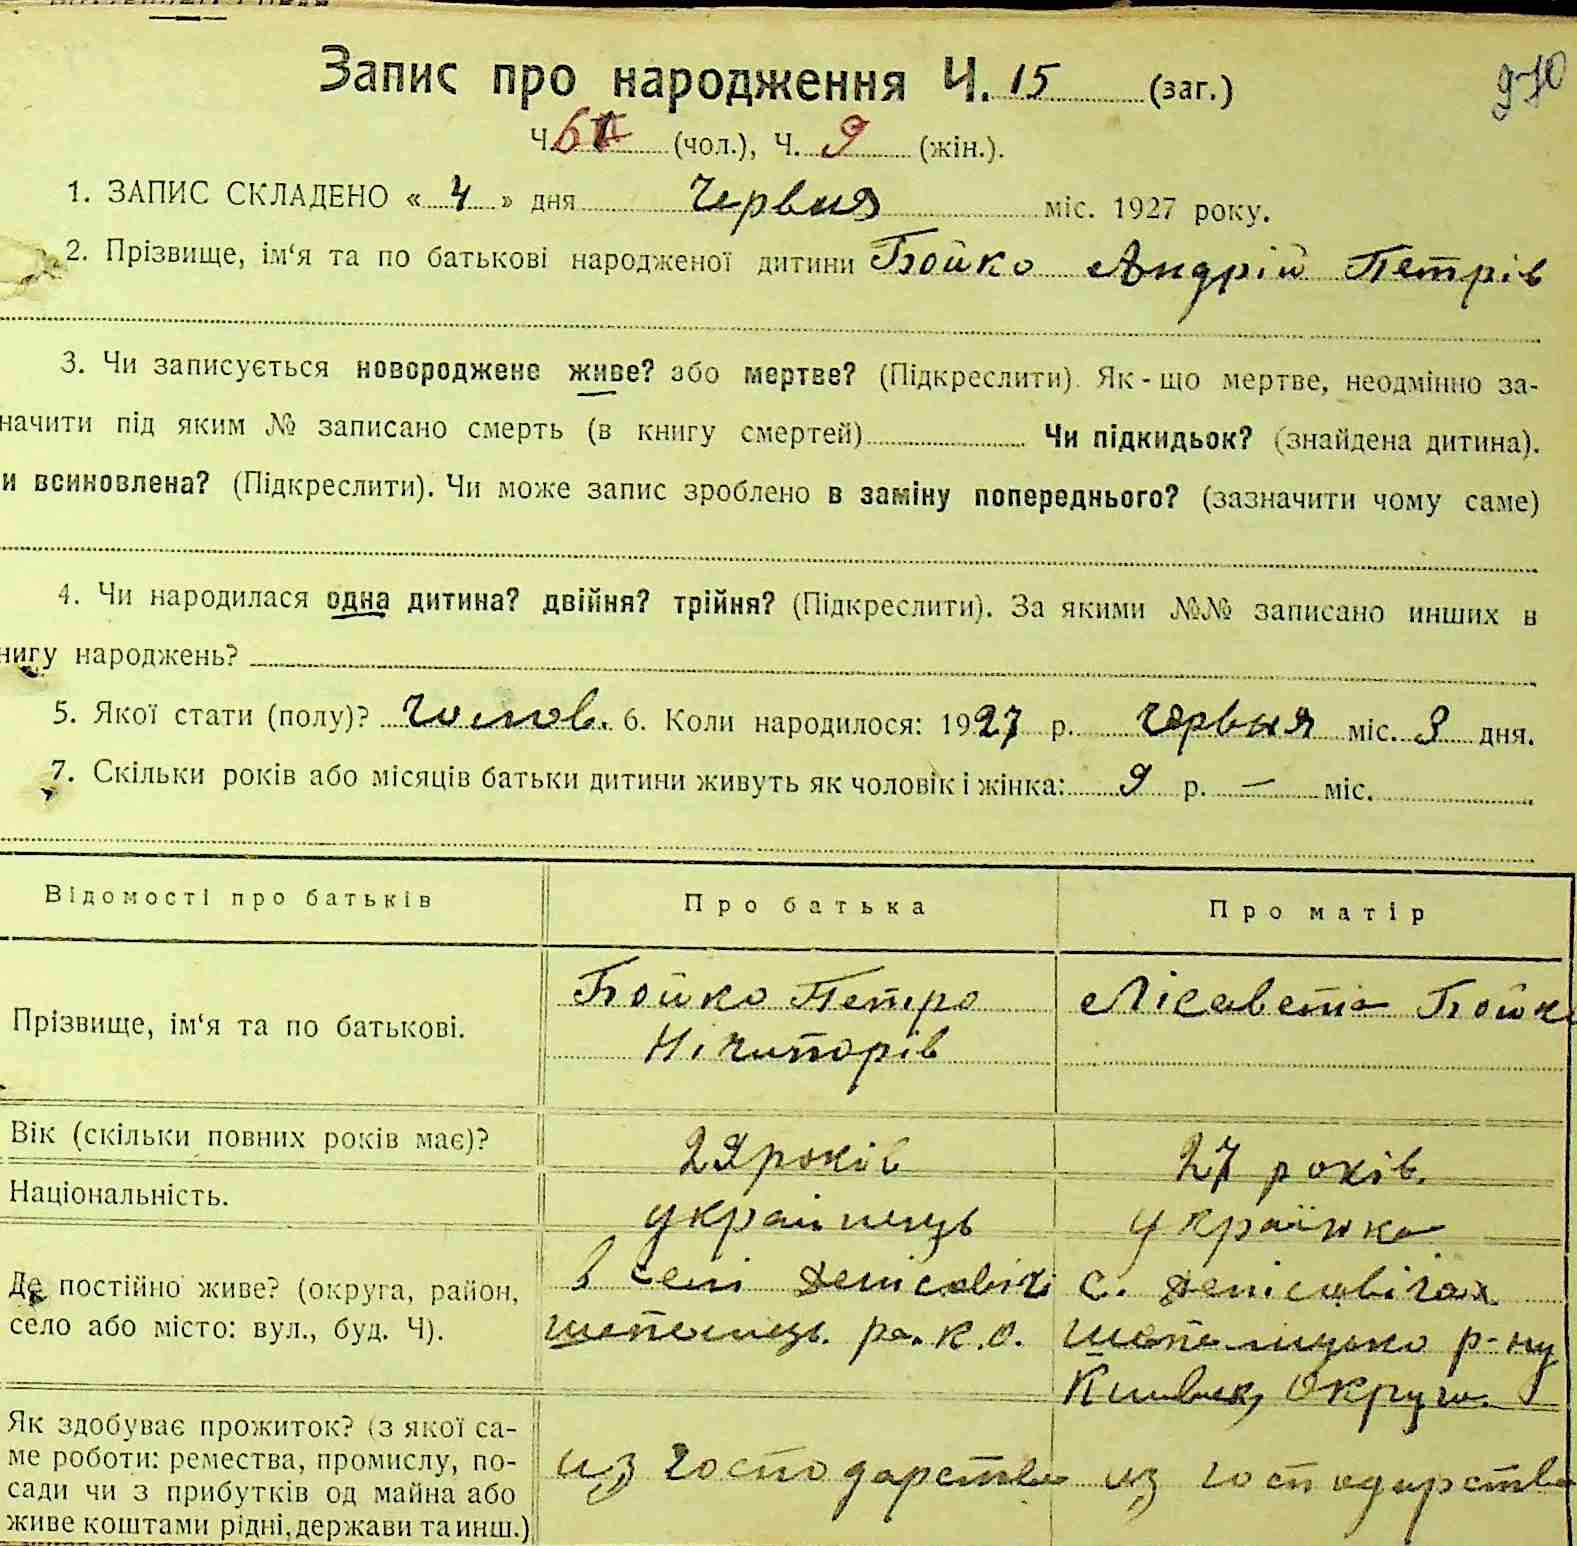 Запис про народження Ч. 15 (заг.)
970
Ч. 6 (чол.), Ч. 9 (жін.).
1. ЗАПИС СКЛАДЕНО « 4 » дня Червня міс. 1927 року.
2. Прізвище, ім‘я та по батькові народженої дитини Бойко Андрій Петрів
3. Чи записується новороджене живе? або мертве? (Підкреслити). Як-що мертве, неодмінно за-
начити під яким № записано смерть (в книгу смертей) Чи підкидьок? (знайдена дитина).
и всиновлена? (Підкреслити). Чи може запис зроблено в заміну попереднього? (зазначити чому саме)
4. Чи народилася одна дитина? двійня? трійня? (Підкреслити). За якими №№ записано инших в
нигу народжень?
5. Якої стати (полу)? чолов. 6. Коли народилося: 1927 р. червня міс. 3 дня.
7. Скільки років або місяців батьки дитини живуть як чоловік і жінка: 9 р. — міс.
Відомості про батьків Про батька Про матір
Прізвище, ім‘я та по батькові. Бойко Петро Лісавета Бойко
Нічипорів
Вік (скільки повних років має)? 29 років 27 років.
Національність. українець українка
Де постійно живе? (округа, район, в селі Денісовічі с. Денісовічах
село або місто: вул., буд. Ч). шепелиць. ра. К.О. шепелицько р-ну
Київськ, Округи.
Як здобуває прожиток? (з якої са-
ме роботи: ремества, промислу, по- из господарства из господарства
сади чи з прибутків од майна або
живе коштами рідні, держави та инш.)